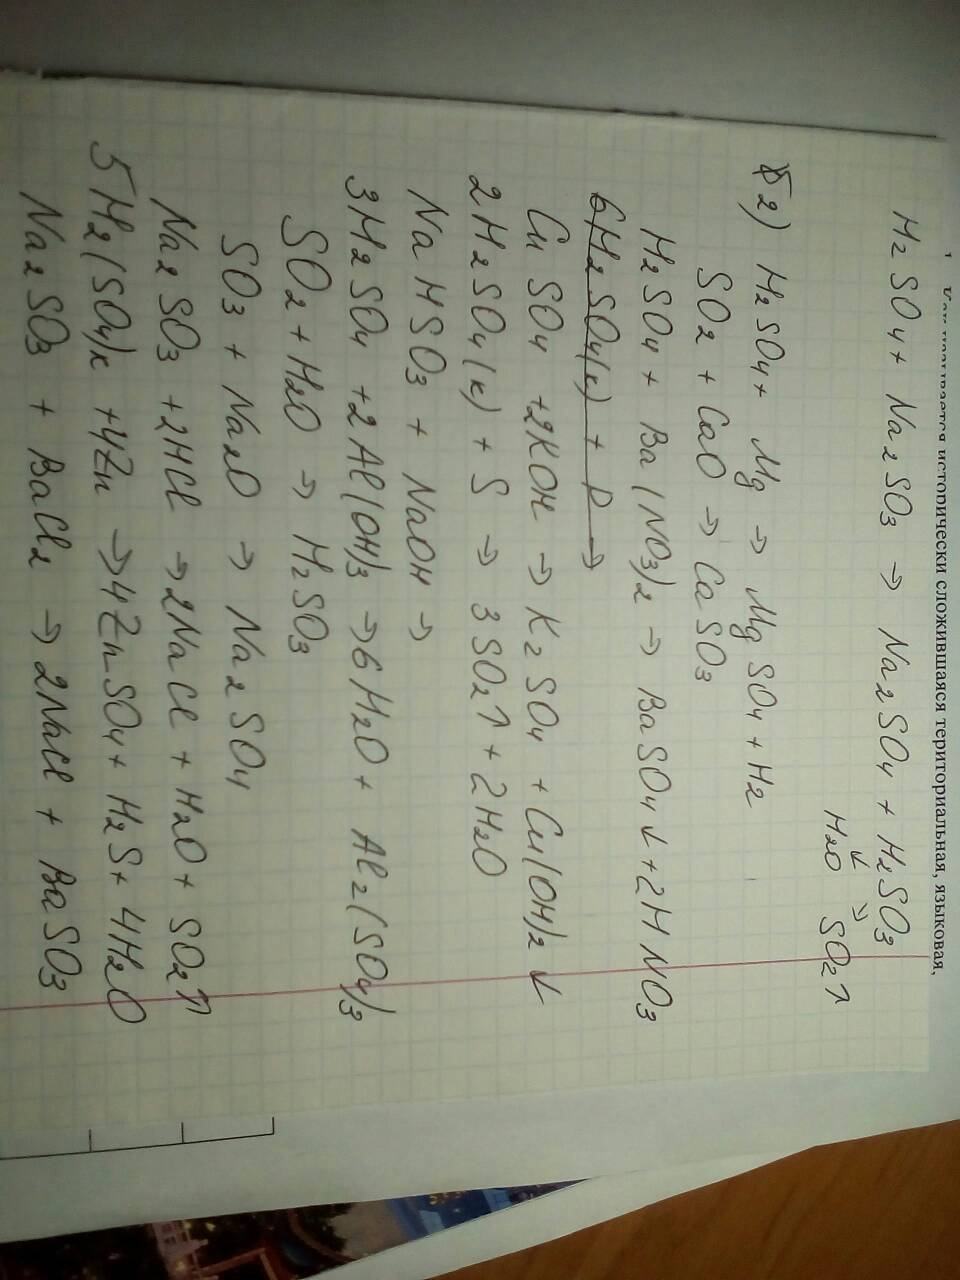 Как называется исторически сложившаяся территориальная, языковая,
H2SO4 + Na2SO3 → Na2SO4 + H2SO3
H2O SO2↑
2) H2SO4 + Mg → MgSO4 + H2
SO2 + CaO → CaSO3
H2SO4 + Ba(NO3)2 → BaSO4↓ + 2HNO3
6H2SO4(к) + P →
CuSO4 + 2KOH → K2SO4 + Cu(OH)2↓
2H2SO4(к) + S → 3SO2↑ + 2H2O
NaHSO3 + NaOH →
3H2SO4 + 2Al(OH)3 → 6H2O + Al2(SO4)3
SO2 + H2O → H2SO3
SO3 + Na2O → Na2SO4
Na2SO3 + 2HCl → 2NaCl + H2O + SO2↑
5H2(SO4)к + 4Zn → 4ZnSO4 + H2S + 4H2O
Na2SO3 + BaCl2 → 2NaCl + BaSO3